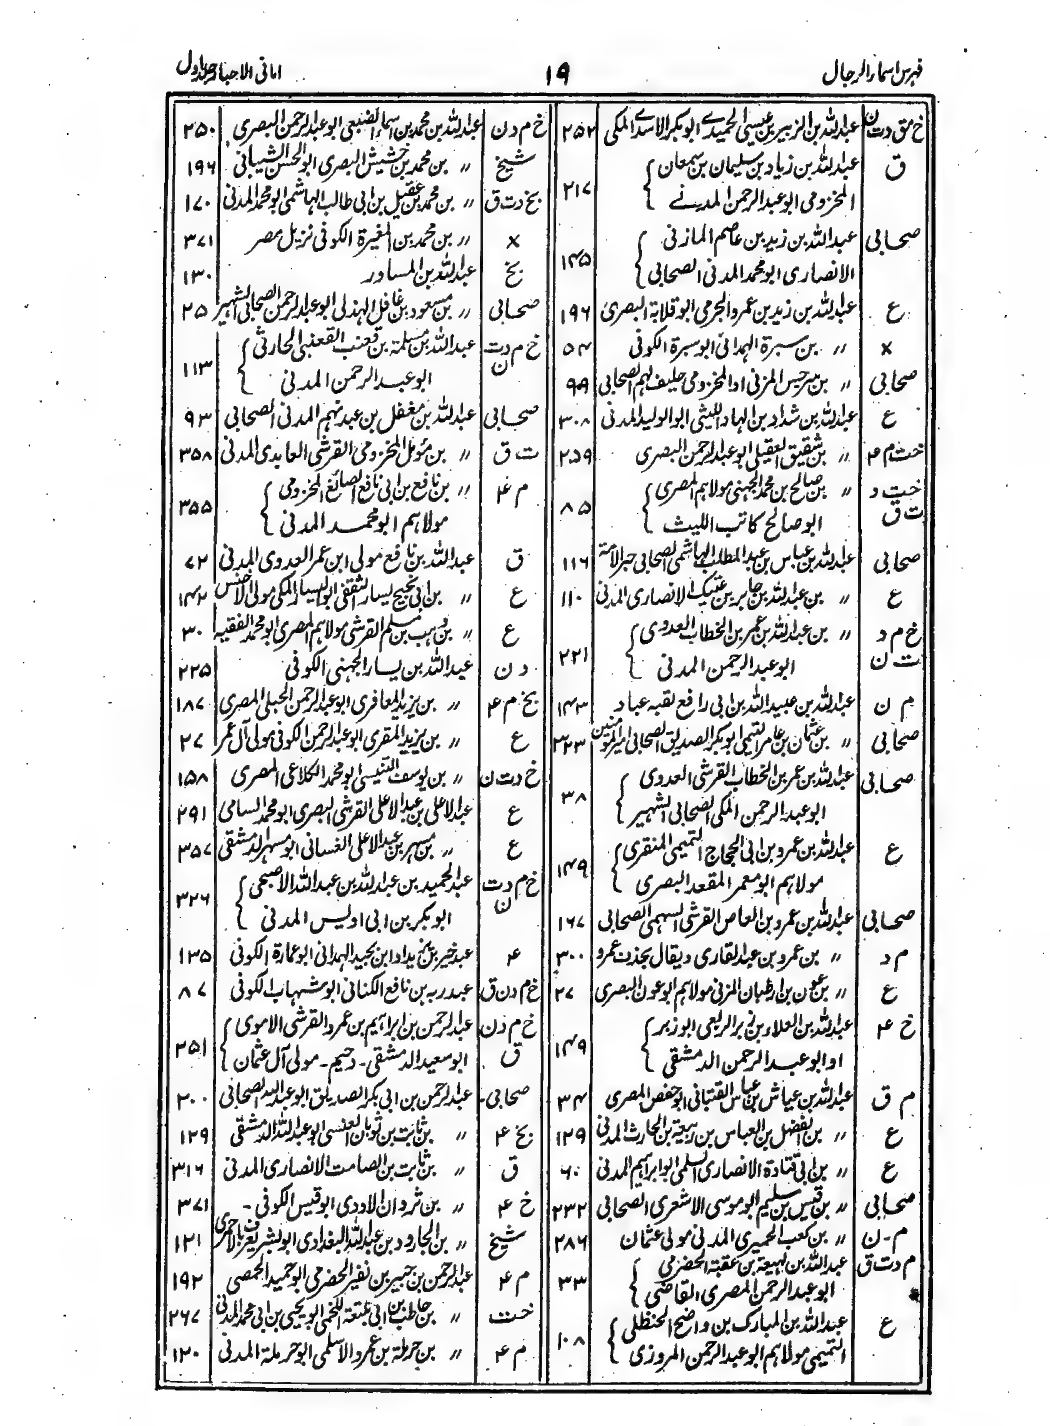 فهرس اسماء الرجال ١٩ امانی الاحبار جلد اول
خ مق د ت ن عبدالله بن الزبیر بن عیسی الحمیدی ابوبکر الاسدی المکی ٢٥٢
ق عبدالله بن زیاد بن سلیمان بن سمعان
المخزومی ابوعبدالرحمن المدنی ٢١٧
صحابی عبدالله بن زید بن عاصم المازنی
الانصاری ابومحمد المدنی الصحابی ١٤٥
ع عبدالله بن زید بن عمرو الجرمی ابوقلابة البصری ١٩٦
× 〃 بن سبرة الهمدانی ابوسبرة الکوفی ٥٤
صحابی 〃 بن سرجس المزنی او المخزومی حلیف لهم الصحابی ٩٩
ع عبدالله بن شداد بن الهاد اللیثی ابوالولید المدنی ٣٠٨
خت م ٤ 〃 بن شقیق العقیلی ابوعبدالرحمن البصری ٢٥٩
خت د ت ق 〃 بن صالح بن محمد الجهنی مولاهم المصری
ابوصالح کاتب اللیث ٨٥
صحابی عبدالله بن عباس بن عبدالمطلب الهاشمی الصحابی حبر الامة ١١٦
ع 〃 بن عبدالله بن جابر بن عتیک الانصاری المدنی ١١٠
خ م د ت ن 〃 بن عبدالله بن عمر بن الخطاب العدوی
ابوعبدالرحمن المدنی ٢٢١
م ن عبدالله بن عبیدالله بن ابی رافع لقبه عباد ١٤٣
صحابی 〃 بن عثمان بن عامر التیمی ابوبکر الصدیق الصحابی امیر المؤمنین ٢٢٣
صحابی عبدالله بن عمر بن الخطاب القرشی العدوی
ابوعبدالرحمن المکی الصحابی الشهیر ٣٨
ع عبدالله بن عمرو بن ابی الحجاج التمیمی المنقری
مولاهم ابومعمر المقعد البصری ١٤٩
صحابی عبدالله بن عمرو بن العاص القرشی السهمی الصحابی ١٦٧
م د 〃 بن عمرو بن عبدالقاری ویقال بحذف عمرو ٣٠٠
ع 〃 بن عون بن ارطبان المزنی مولاهم ابوعون البصری ٢٧
خ ٤ عبدالله بن العلاء بن زبر الربعی ابوزبر
او ابوعبدالرحمن الدمشقی ١٤٩
م ق عبدالله بن عیاش بن عباس القتبانی ابوحفص المصری ٣٤
ع 〃 بن الفضل بن العباس بن ربیعة بن الحارث المدنی ١٢٩
ع 〃 بن ابی قتادة الانصاری السلمی ابوابراهیم المدنی ٦٠
صحابی 〃 بن قیس بن سلیم ابوموسی الاشعری الصحابی ٢٣٢
م-ن 〃 بن کعب الحمیری المدنی مولی عثمان ٢٨٦
م د ت ق عبدالله بن لهیعة بن عقبة الحضرمی
ابوعبدالرحمن المصری القاضی ٣٣
ع عبدالله بن المبارک بن واضح الحنظلی
التمیمی مولاهم ابوعبدالرحمن المروزی ١٠٨
خ م د ن عبدالله بن محمد بن اسماء الضبعی ابوعبدالرحمن البصری ٢٥٠
شیخ 〃 بن محمد بن خشیش البصری ابوالحسن الشیبانی ١٩٦
بخ د ت ق 〃 بن محمد بن عقیل بن ابی طالب الهاشمی ابومحمد المدنی ١٧٠
× 〃 بن محمد بن المغیرة الکوفی نزیل مصر ٣٧١
بخ عبدالله بن المساور ١٣٠
صحابی 〃 بن مسعود بن غافل الهذلی ابوعبدالرحمن الصحابی الشهیر ٢٥
خ م د ت ن عبدالله بن مسلمة بن قعنب القعنبی الحارثی
ابوعبدالرحمن المدنی ١١٣
صحابی عبدالله بن مغفل بن عبد نهم المدنی الصحابی ٩٣
ت ق 〃 بن مؤمل المخزومی القرشی العابدی المدنی ٣٥٨
م ٤ 〃 بن نافع بن ابی نافع الصائغ المخزومی
مولاهم ابومحمد المدنی ٣٥٥
ق عبدالله بن نافع مولی ابن عمر العدوی المدنی ٧٢
ع 〃 بن ابی نجیح یسار الثقفی ابوالیسار المکی مولی الاخنس ١٤٢
ع 〃 بن وهب بن مسلم القرشی مولاهم المصری ابومحمد الفقیه ٣٠
د ن عبدالله بن یسار الجهنی الکوفی ٢٢٥
بخ م ٤ 〃 بن یزید المعافری ابوعبدالرحمن الحبلی المصری ١٨٧
ع 〃 بن یزید المقری ابوعبدالرحمن الکوفی مولی آل عمر ٢٧
خ د ت ن 〃 بن یوسف التنیسی ابومحمد الکلاعی المصری ١٥٨
ع عبدالاعلی بن عبدالاعلی القرشی البصری ابومحمد السامی ٢٩١
ع 〃 بن مسهر بن عبدالاعلی الغسانی ابومسهر الدمشقی ٣٥٧
خ م د ت ن عبدالحمید بن عبدالله بن عبدالله الاصبحی
ابوبکر بن ابی اویس المدنی ٣٢٦
٤ عبد خیر بن یزید او ابن بجید الهمدانی ابوعمارة الکوفی ١٣٥
خ م د ن ق عبد ربه بن نافع الکنانی ابوشهاب الکوفی ٨٧
خ م د ن ق عبدالرحمن بن ابراهیم بن عمرو القرشی الاموی
ابوسعید الدمشقی - دحیم - مولی آل عثمان ٢٥١
صحابی - عبدالرحمن بن ابی بکر الصدیق ابوعبدالله الصحابی ٢٠٠
بخ ٤ 〃 بن ثابت بن ثوبان العنسی ابوعبدالله الدمشقی ١٢٩
ق 〃 بن ثابت بن الصامت الانصاری المدنی ٣١٦
خ ٤ 〃 بن ثروان الاودی ابوقیس الکوفی - ٣٧١
شیخ 〃 بن الجارود بن عبدالله البغدادی ابوبشر یعرف بالاحمری ١٢١
م ٤ عبدالرحمن بن جبیر بن نفیر الحضرمی ابوحمید الحمصی ١٩٢
خت 〃 بن حاطب بن ابی بلتعة اللخمی ابویحیی بن ابی محمد المدنی ٢٦٧
م ٤ 〃 بن حرملة بن عمرو الاسلمی ابوحرملة المدنی ١٢٠